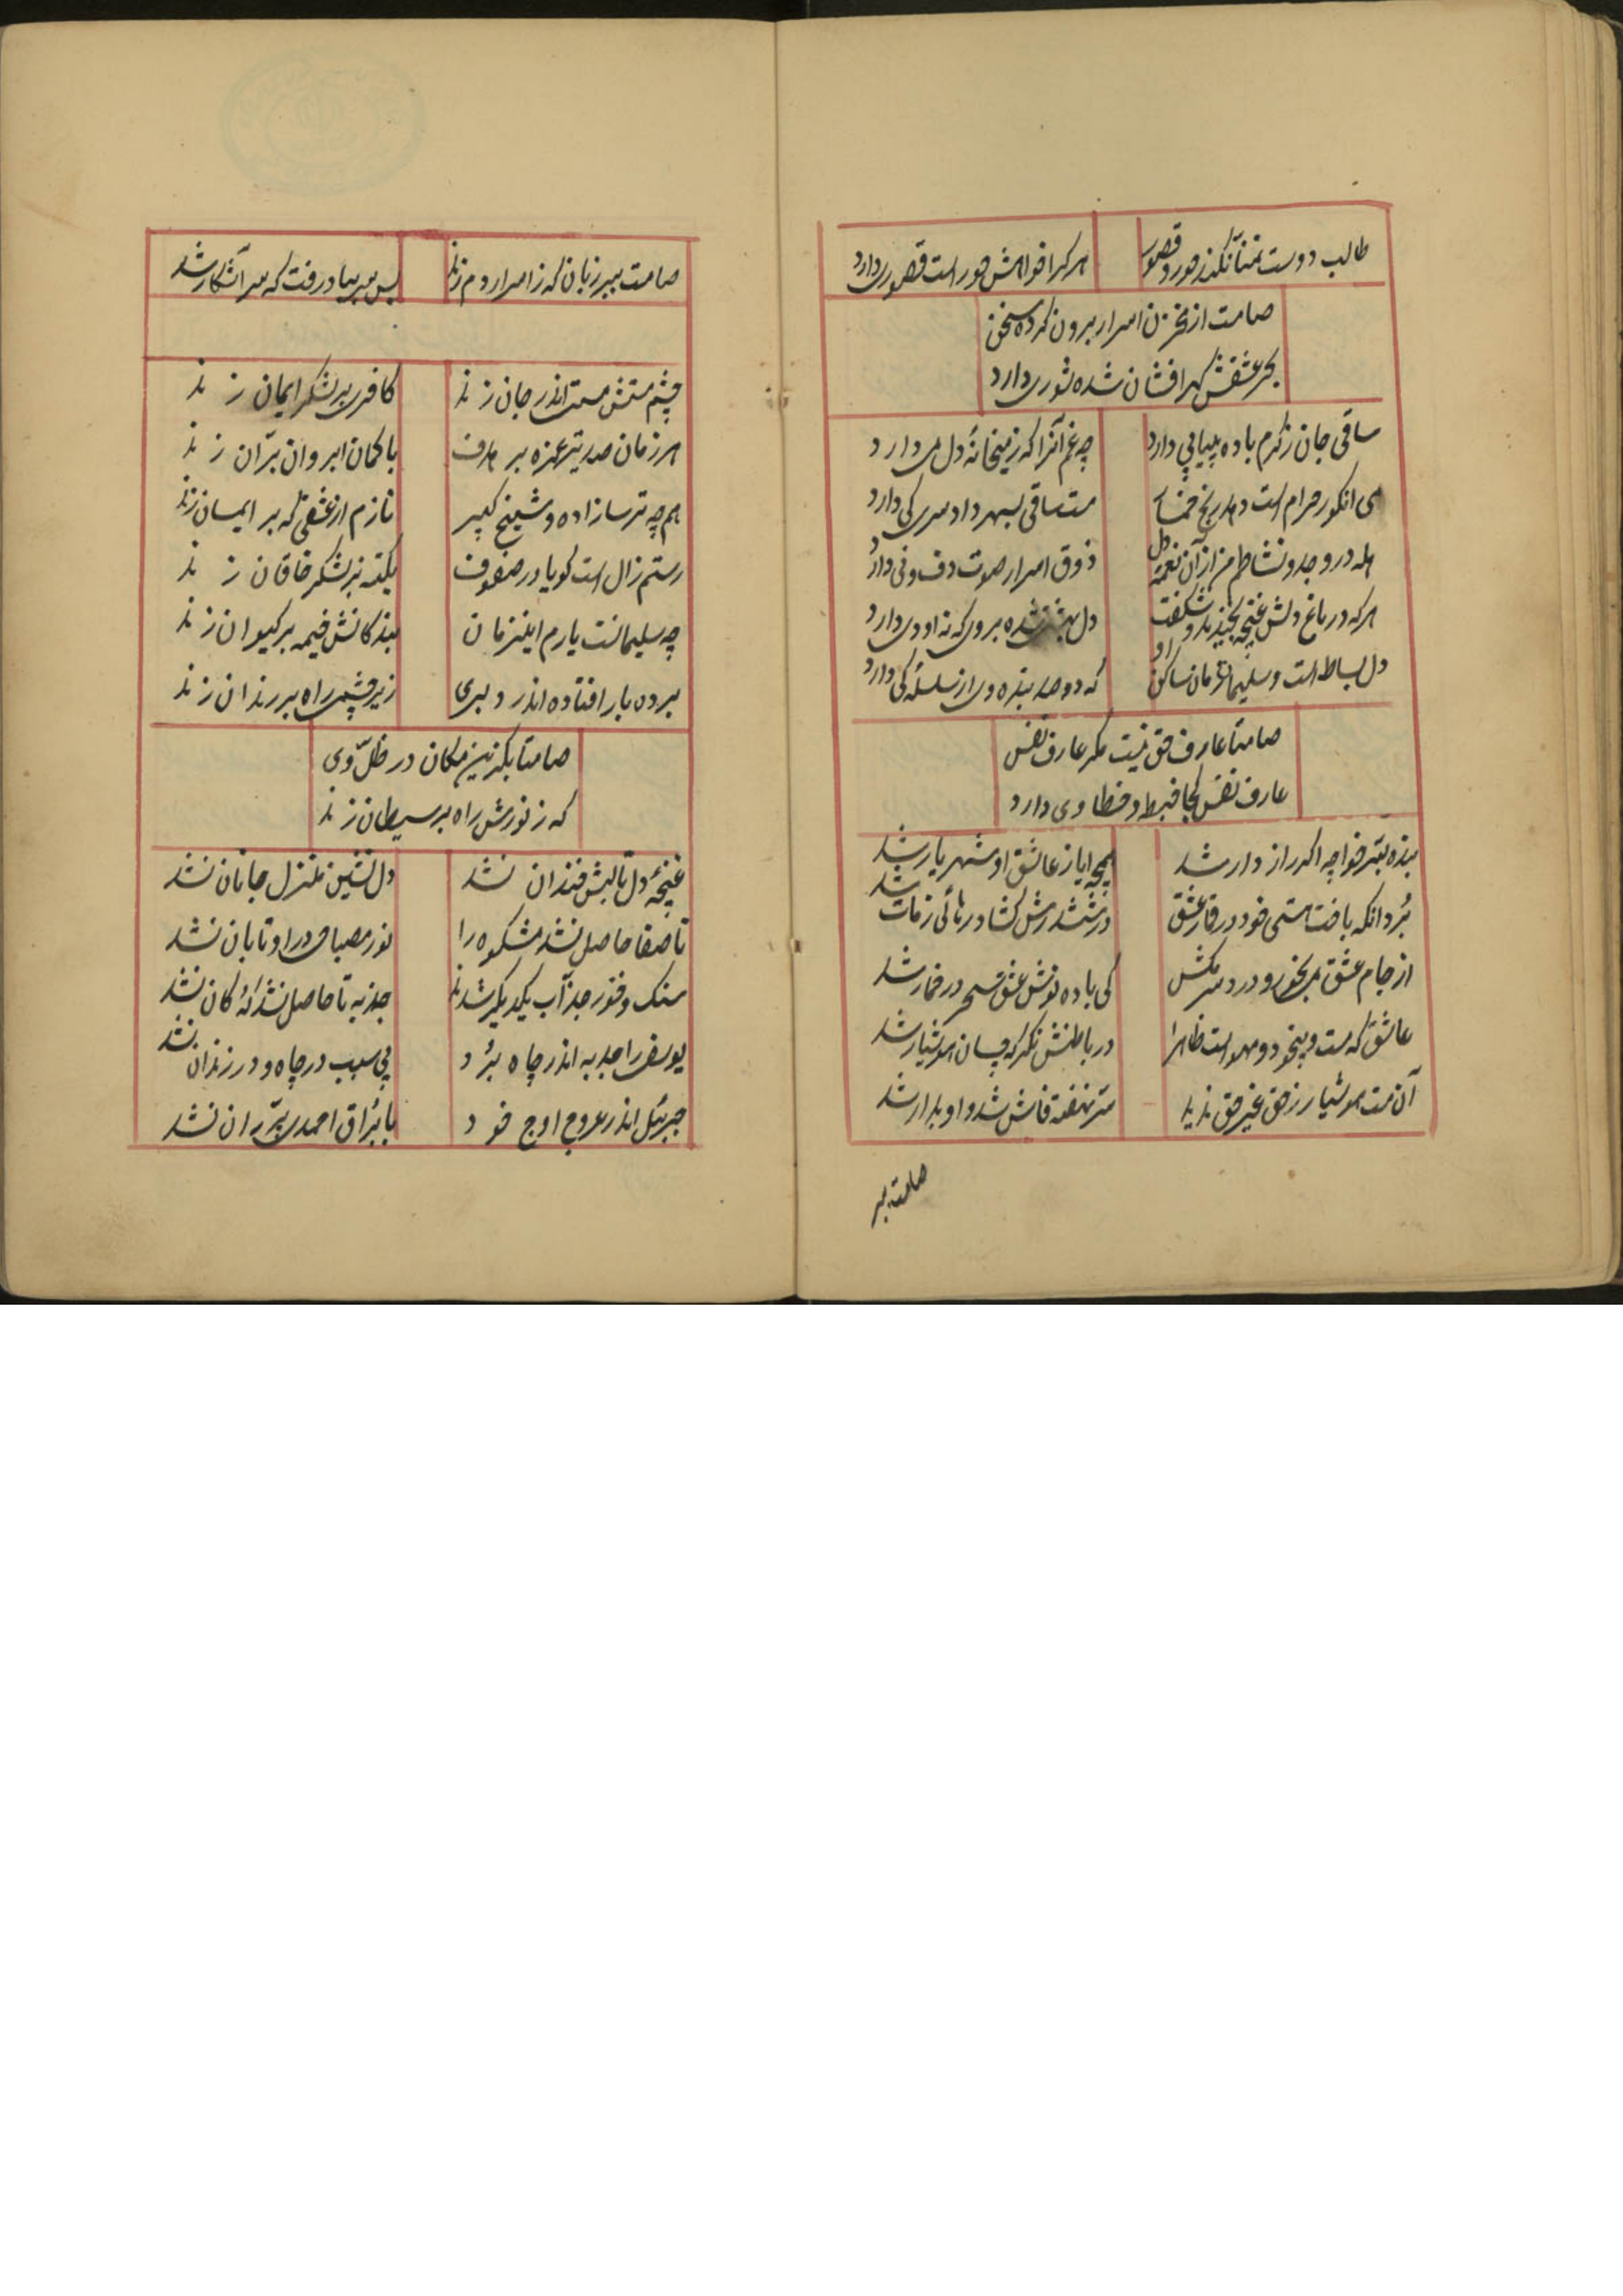 طالب دوست تمنا نکند حور و قصور
هر کرا خواهش حور است قصوری دارد
صامت از مخزن اسرار برون کرده سخن
بحر عشقش گهر افشان شده شوری دارد
ساقی جان ز کرم باده پیاپی دارد
چه غم آنرا که ز میخانهٔ دل می دارد
می انکور حرام است
مست ساقی بسر داد سر کی دارد
همه در وجد و نشاطم من از آن نغمهٔ دل
ذوق اسرار صوت دف و نی دارد
هر که در باغ دلش غنچه بخندید و شکفت
دل بساط است و سلیمان زمان ساکن او
که دو صد بنده
صامتا عارف حق نیست مکر عارف نفس
عارف نفس کجا خبط و خطا وی دارد
بنده بمیر خواجه اکر رازدار شد
همچه ایاز عاشق او شهریار شد
بُرد انکه باخت هستی خود در قمار عشق
در ششدرش کشاد رهائی ز مات شد
از جام عشق می بخور و درد سر مکش
کی باده نوش عشق سحر در خمار شد
عاشق که مست و بیخود و مهو است ظاهرا
در باطنش نکر که چسان هوشیار شد
آن مست هوشیار ز حق غیر حق ندید
سرّ نهفته فاش شد و او بدار شد
صامت ببر
صامت ببر زبان که ز اسرار دم زند
بس سر بباد رفت که سر آشکار شد
چشم مستش مست اندر جان زند
کافری بر لشکر ایمان زند
هر زمان صد تیر غمزه بر هدف
با کمان ابروان برّان زند
هم چه ترسازاده و شیخ کبیر
نازم از عشقی که بر ایمان زند
رستم زال است کویا در صفوف
یکتنه بر لشکر خاقان زند
چه سلیمانست یارم اینزمان
بندکانش خیمه بر کیوان زند
برده بار افتاده اندر دلبری
زیر چشمی راه بر رندان زند
صامتا بکزین مکان در ظلّ وی
که ز نورش راه بر سیطان زند
غنچهٔ دل تا لبش خندان نشد
دل نشین منزل جانان نشد
تا صفا حاصل نشد مشکوه را
نور مصباحی در او تابان نشد
سنک و جذّاب یکدیکر شدند
جذبه تا حاصل نشد کان نشد
یوسف را جذبه اندر چاه بُرد
بی سبب در چاه و در زندان نشد
جبرئیل اندر عروج اوج خود
با بُراق احمدی پرّران نشد